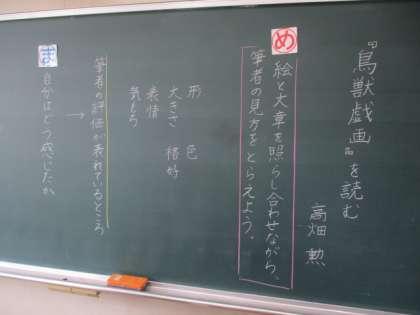 『鳥獣戯画』を読む
高畑 勲
め
絵と文章を照らし合わせながら、
筆者の見方をとらえよう。
形 色
大きさ 格好
表情
気もち
筆者の評価が表れているところ
→
ま
自分はどう感じたか